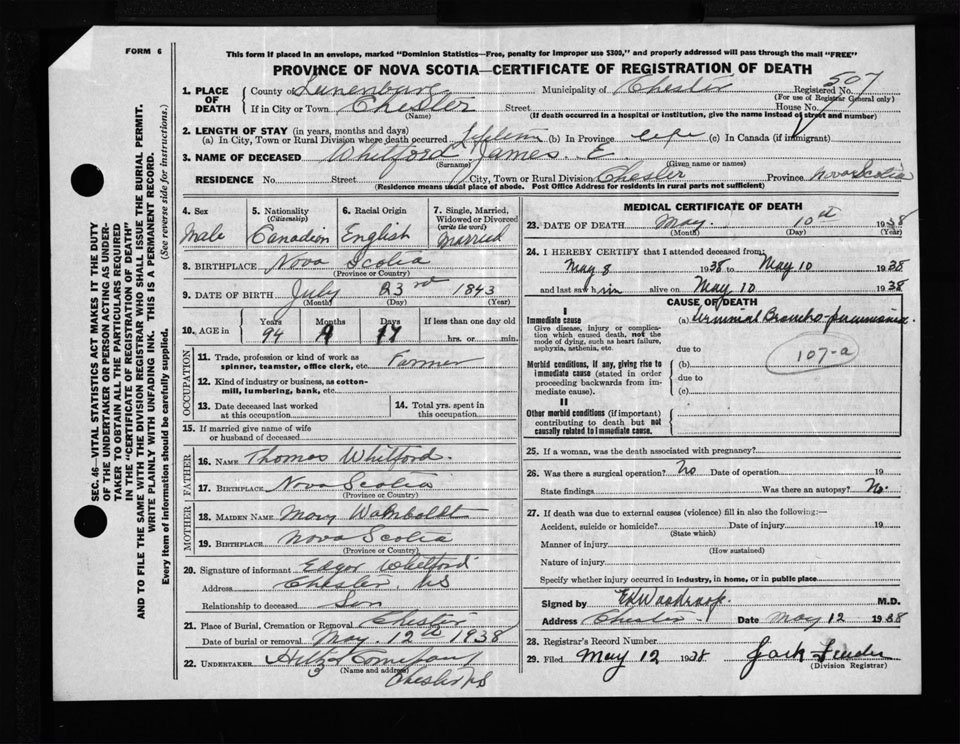 FORM 6
This form if placed in an envelope, marked "Dominion Statistics—Free, penalty for improper use $300," and properly addressed will pass through the mail "FREE"
PROVINCE OF NOVA SCOTIA—CERTIFICATE OF REGISTRATION OF DEATH
1. PLACE OF DEATH
County of Lunenburg Municipality of Chester Registered No. 507
(For use of Registrar General only)
If in City or Town Chester Street House No.
(Name) (If death occurred in a hospital or institution, give the name instead of street and number)
2. LENGTH OF STAY (in years, months and days)
(a) In City, Town or Rural Division where death occurred Lifetime (b) In Province life (c) In Canada (if immigrant)
3. NAME OF DECEASED Whitford James E.
(Surname) (Given name or names)
RESIDENCE No. Street City, Town or Rural Division Chester Province Nova Scotia
(Residence means usual place of abode. Post Office Address for residents in rural parts not sufficient)
4. Sex Male
5. Nationality (Citizenship) Canadian
6. Racial Origin English
7. Single, Married, Widowed or Divorced (write the word) Married
8. BIRTHPLACE Nova Scotia
(Province or Country)
9. DATE OF BIRTH July 23rd 1843
(Month) (Day) (Year)
10. AGE in Years Months Days If less than one day old
94 9 17 hrs. or min.
OCCUPATION
11. Trade, profession or kind of work as spinner, teamster, office clerk, etc. Farmer
12. Kind of industry or business, as cotton-mill, lumbering, bank, etc.
13. Date deceased last worked at this occupation
14. Total yrs. spent in this occupation
15. If married give name of wife or husband of deceased
FATHER
16. NAME Thomas Whitford.
17. BIRTHPLACE Nova Scotia
(Province or Country)
MOTHER
18. MAIDEN NAME Mary Wamboldt
19. BIRTHPLACE Nova Scotia
(Province or Country)
20. Signature of informant Edgar Whitford
Address Chester, NS
Relationship to deceased Son
21. Place of Burial, Cremation or Removal Chester
Date of burial or removal May 12th 1938
22. UNDERTAKER Company
(Name and address) Chester NS
MEDICAL CERTIFICATE OF DEATH
23. DATE OF DEATH May 10th 1938
(Month) (Day) (Year)
24. I HEREBY CERTIFY that I attended deceased from:
May 8 1938 to May 10 1938
and last saw him alive on May 10 1938
CAUSE OF DEATH
I
Immediate cause (a) Terminal Broncho-pneumonia.
Give disease, injury or complication which caused death, not the mode of dying, such as heart failure, asphyxia, asthenia, etc.
due to
107-a
Morbid conditions, if any, giving rise to immediate cause (stated in order proceeding backwards from immediate cause).
(b)
due to
(c)
II
Other morbid conditions (if important) contributing to death but not causally related to immediate cause.
25. If a woman, was the death associated with pregnancy?
26. Was there a surgical operation? No Date of operation 19
State findings Was there an autopsy? No.
27. If death was due to external causes (violence) fill in also the following:—
Accident, suicide or homicide? Date of injury 19
(State which)
Manner of injury
(How sustained)
Nature of injury
Specify whether injury occurred in industry, in home, or in public place
Signed by M.D.
Address Chester Date May 12 1938
28. Registrar's Record Number
29. Filed May 12 1938 Jack
(Division Registrar)
SEC. 46—VITAL STATISTICS ACT MAKES IT THE DUTY
OF THE UNDERTAKER OR PERSON ACTING AS UNDER-
TAKER TO OBTAIN ALL THE PARTICULARS REQUIRED
IN THE "CERTIFICATE OF REGISTRATION OF DEATH"
AND TO FILE THE SAME WITH THE DIVISION REGISTRAR WHO SHALL ISSUE THE BURIAL PERMIT.
WRITE PLAINLY WITH UNFADING INK. THIS IS A PERMANENT RECORD.
Every item of information should be carefully supplied. (See reverse side for instructions.)